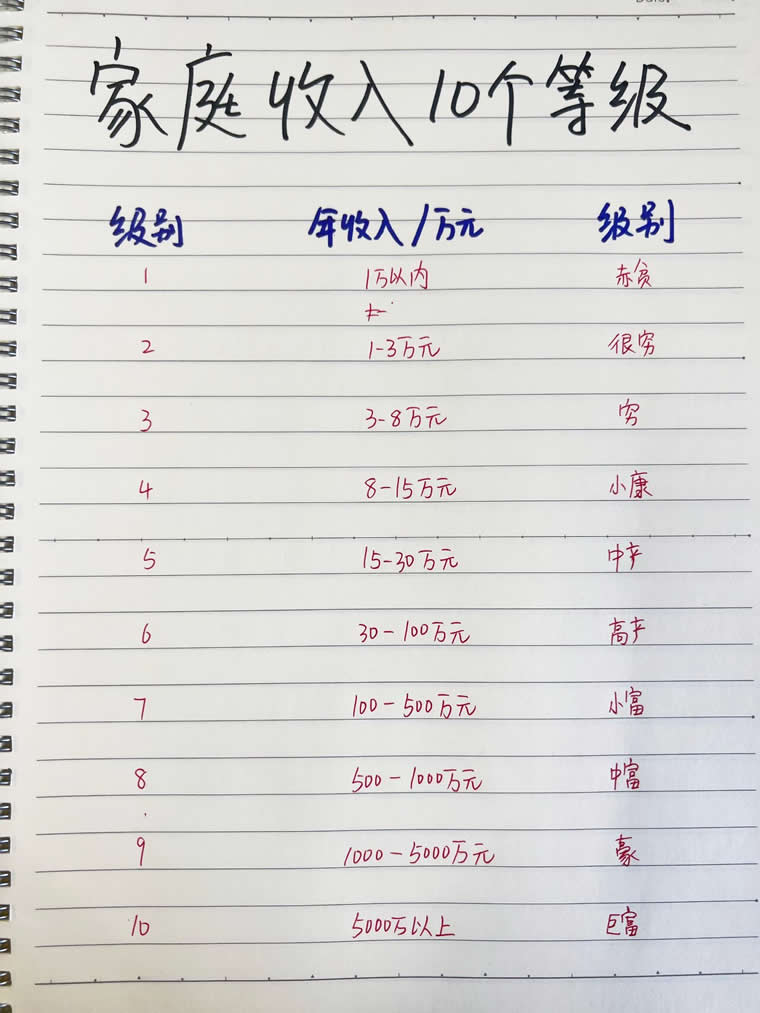 家庭收入10个等级
级别 年收入/万元 级别
1 1万以内 赤贫
2 1-3万元 很穷
3 3-8万元 穷
4 8-15万元 小康
5 15-30万元 中产
6 30-100万元 高产
7 100-500万元 小富
8 500-1000万元 中富
9 1000-5000万元 豪
10 5000万以上 巨富